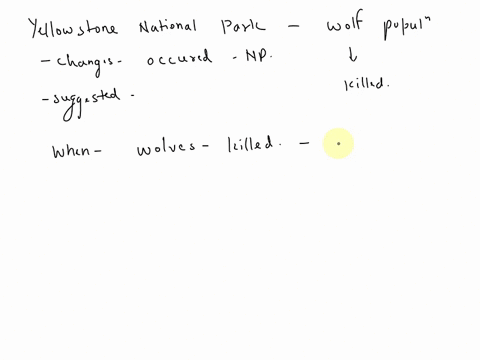 Yellowstone National Park - wolf populⁿ
- changes- occured - NP. ↓
- suggested - killed.
When - wolves - killed. -